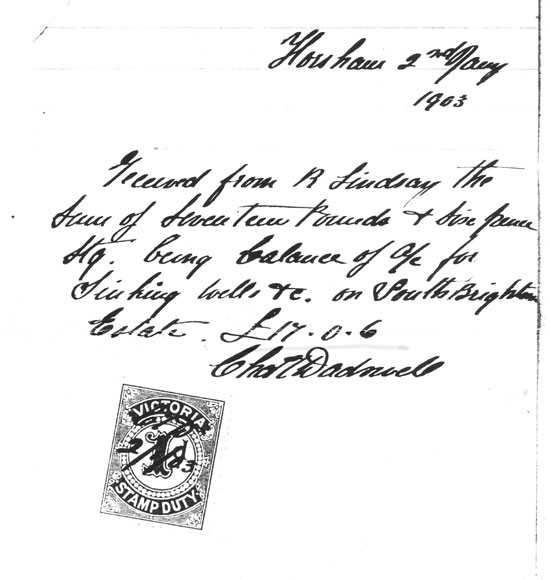 Horsham 2nd Jany
1903
Received from R Lindsay the
Sum of Seventeen Pounds & Six pence
Stg. being balance of A/c for
Sinking Wells &c. on South Brighton
Estate. £17.0.6
Chas Dadswell
VICTORIA
1D
2/1/03
STAMP DUTY